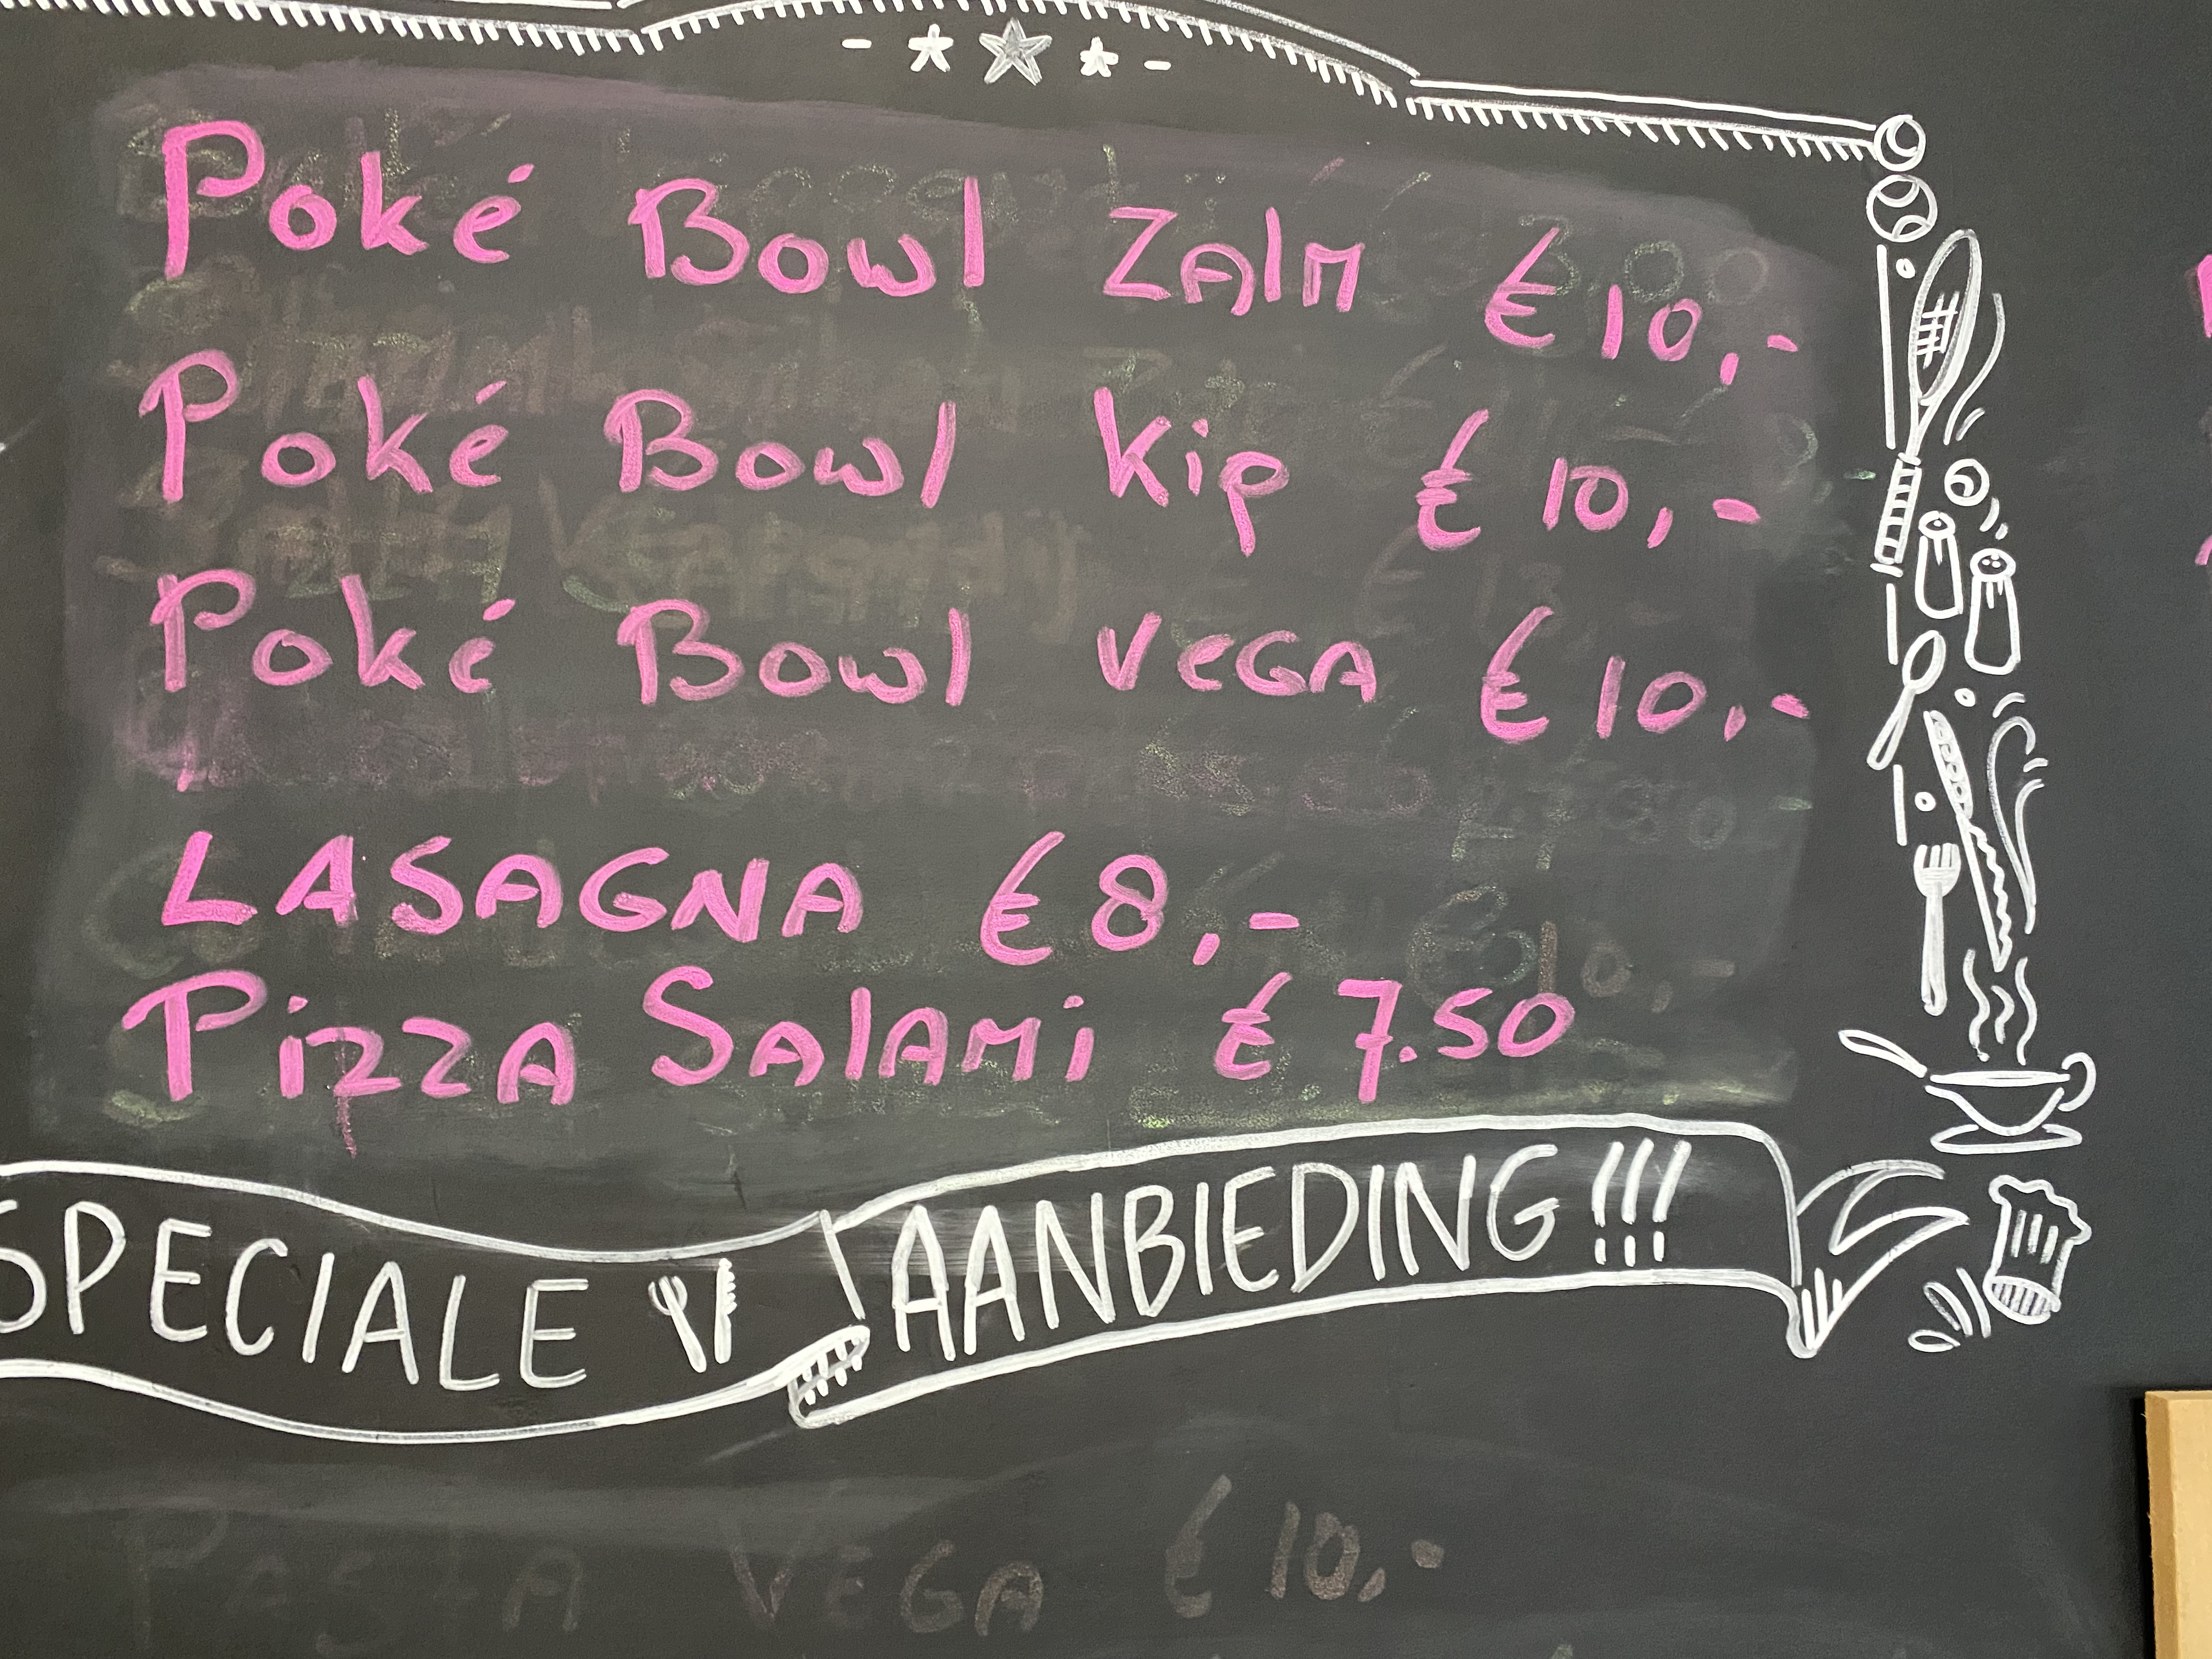 Poké Bowl Zalm € 10,-
Poké Bowl Kip € 10,-
Poké Bowl VEGA € 10,-
LASAGNA € 8,-
Pizza Salami € 7.50
SPECIALE AANBIEDING!!!
PASTA VEGA € 10,-